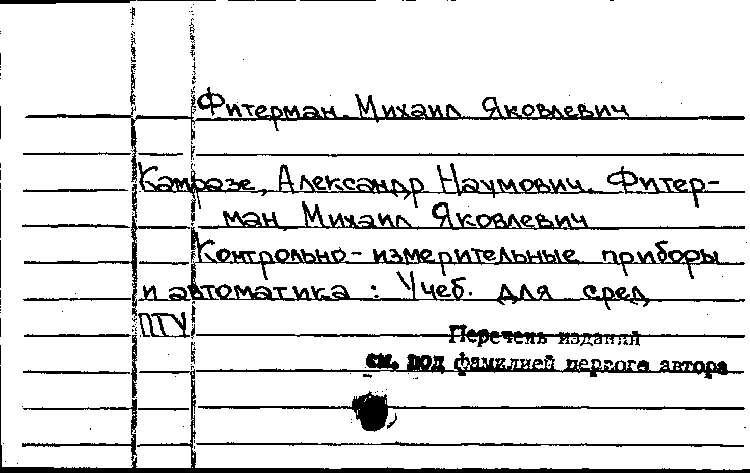 Фитерман Михаил Яковлевич
Камразе, Александр Наумович. Фитер-
ман Михаил Яковлевич
Контрольно-измерительные приборы
и автоматика : Учеб. для сред
ПТУ
Перечень изданий
см. под фамилией первого автора